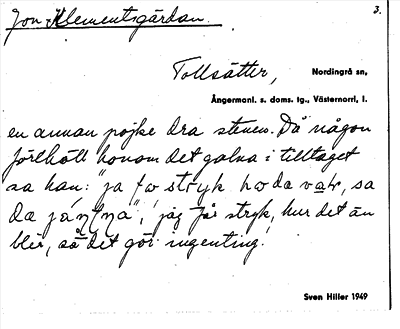 Jon Klementsgårdan.
3.
Tollsätter, Nordingrå sn,
Ångermanl. s. doms. tg., Västernorrl. l.
en annan pojke dra stenen. Då någon
förehöll honom det galna i tilltaget
sa han: "ja fo stryk ho da var, sa
da jänna", "jag får stryk, hur det än
blir, så det gör ingenting."
Sven Hiller 1949